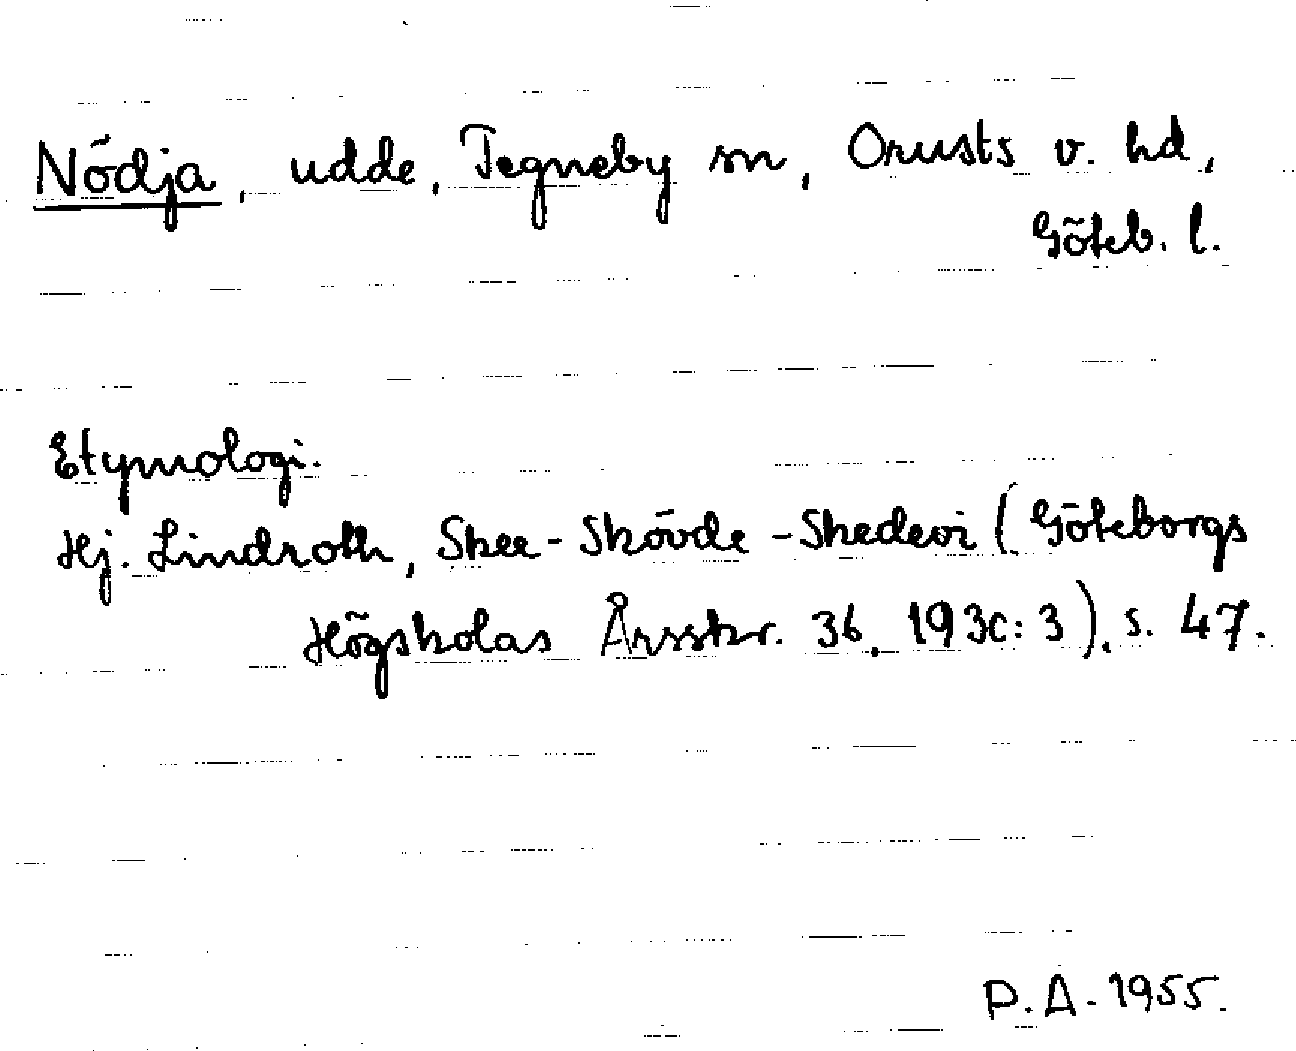 Nödja, udde, Tegneby sn, Orusts v. hd,
Göteb. l.
Etymologi.
Hj. Lindroth, Skee-Skövde-Skedevi (Göteborgs
Högskolas Årsskr. 36, 1930:3), s. 47.
P.A. 1955.